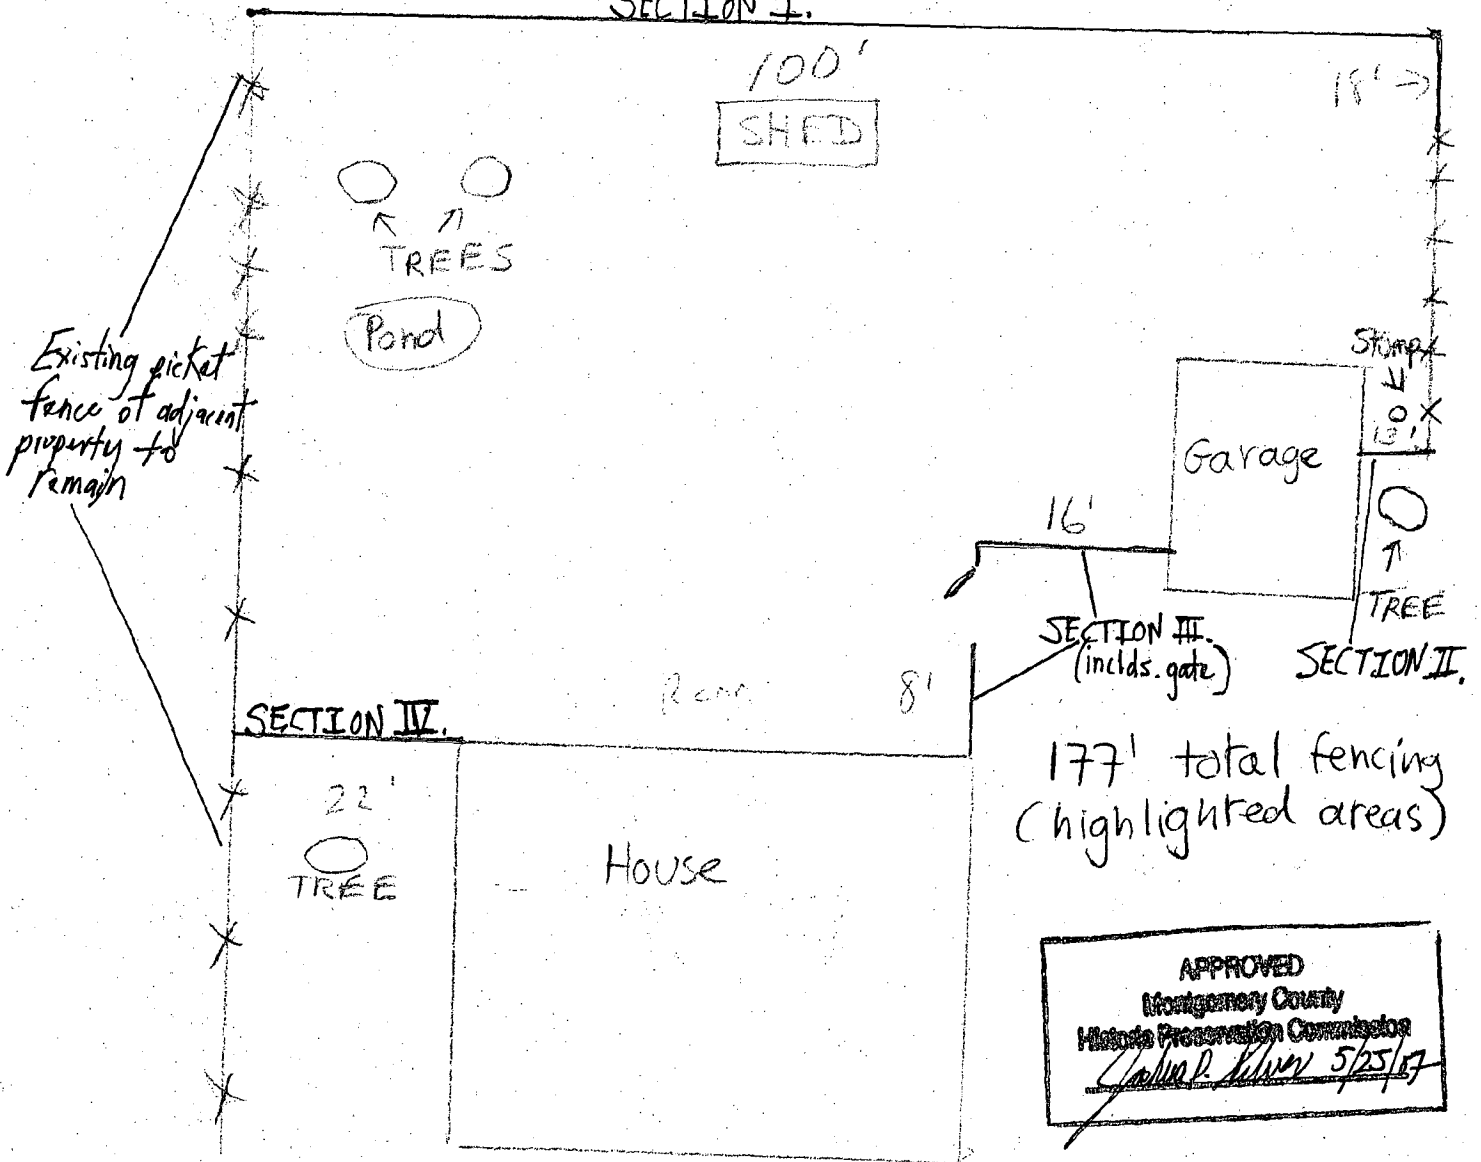 SECTION I.
100'
18' →
SHED
TREES
Pond
Existing picket
fence of adjacent
property to
remain
Stump
Garage
16'
TREE
SECTION III.
(inclds. gate)
SECTION II.
8'
SECTION IV.
22'
TREE
House
177' total fencing
(highlighted areas)
APPROVED
Montgomery County
Historic Preservation Commission
5/25/07